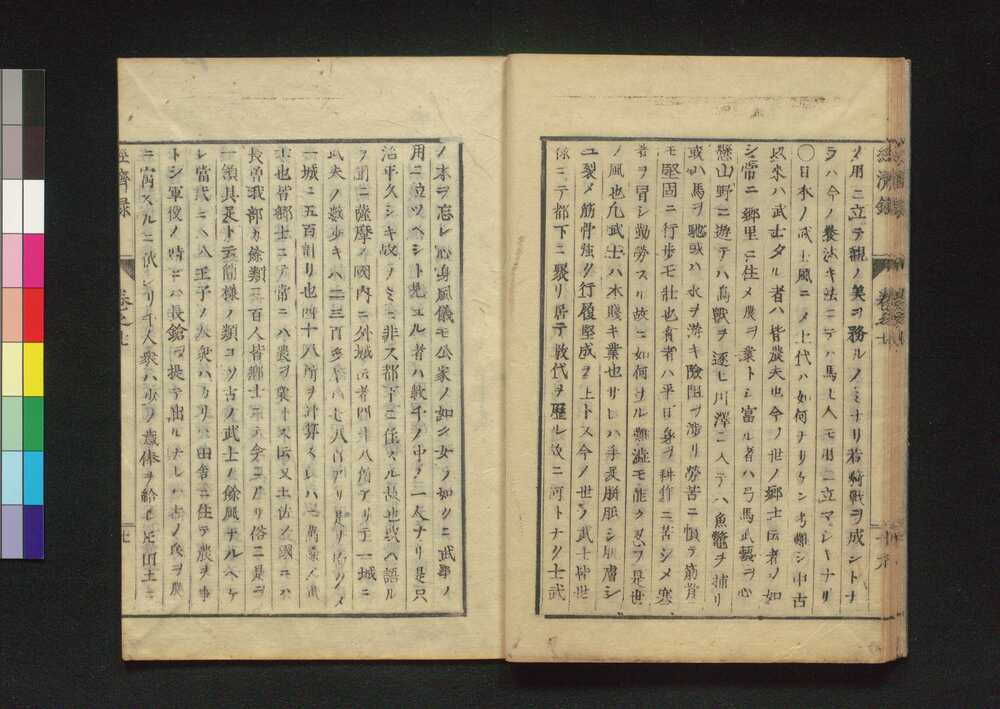 メ用ニ立テ観ノ美ヲ務ルノミナリ若騎戦ヲ成ントナ
ラハ今ノ養法キ法ニテハ馬モ人モ用ニ立マシキナリ
〇日本ノ武士風ニメ上代ハ如何ナリケン考難シ中古
以来ハ武士タル者ハ皆農夫也今ノ世ノ郷士ト云者ノ如
シ常ニ郷里ニ住メ農ヲ業トシ富ル者ハ弓馬武藝ヲ心
懸山野ニ遊テハ鳥獣ヲ逐ヒ川澤ニ入テハ魚鼈ヲ捕リ
或ハ馬ヲ馳或ハ水ヲ游キ険阻ヲ渉リ勞苦ニ慣テ筋骨
モ堅固ニ行歩モ壮也貧者ハ平日身ヲ耕作ニ苦シメ寒
暑ヲ冒シ勤勞スル故ニ如何ナル難澁モ能クタ忍フ是世
ノ風也凡武士ハ木賤キ業也サレハ手足胼胝シ肌膚
ユ裂メ筋骨強ク行履堅成ヲ上トス今ノ世ノ武士皆世
禄ニテ都下ニ聚リ居テ数代ヲ歴ル故ニ何トナク士武
經濟録 巻之七
ノ本ヲ忘レ心身風儀モ公家ノ如ク女ノ如クニ武事ノ
用ニ立ツヘシト見ユル者ハ数千ノ中ノ一人ナリ是只
治平久シキ故ノミニ非ス都下ニ住スル故也或ハ語ル
ヲ聞ニ薩摩ノ國内ニ外城ト云者四十八所アリテ一城ニ
武夫ノ数少キハ二三百多キハ七八百アリ是ヲ
一城ニ五百計リ也四十八所ヲ計算スレハ二萬
士也皆郷士ニテ常ニハ農ヲ業トス又土佐ノ國ニハ
長曽我部カ餘類三百人皆郷士ニテ今ニアリ俗ニ是ヲ
一領具足ト云箇様ノ類コソ古ノ武士ノ餘風ナルヘケ
レ當代ニハ八王子ノ人衆ハカリハ田舎ニ住テ農ヲ事
トシ軍役ノ時ニハ長鎗ヲ提テ出ルナレハ古ノ兵ヲ農
ニ寓スルニ似タリ千人衆ハ少ノ歳俸ヲ給ヒ田土ニ
經濟録 巻之七 七